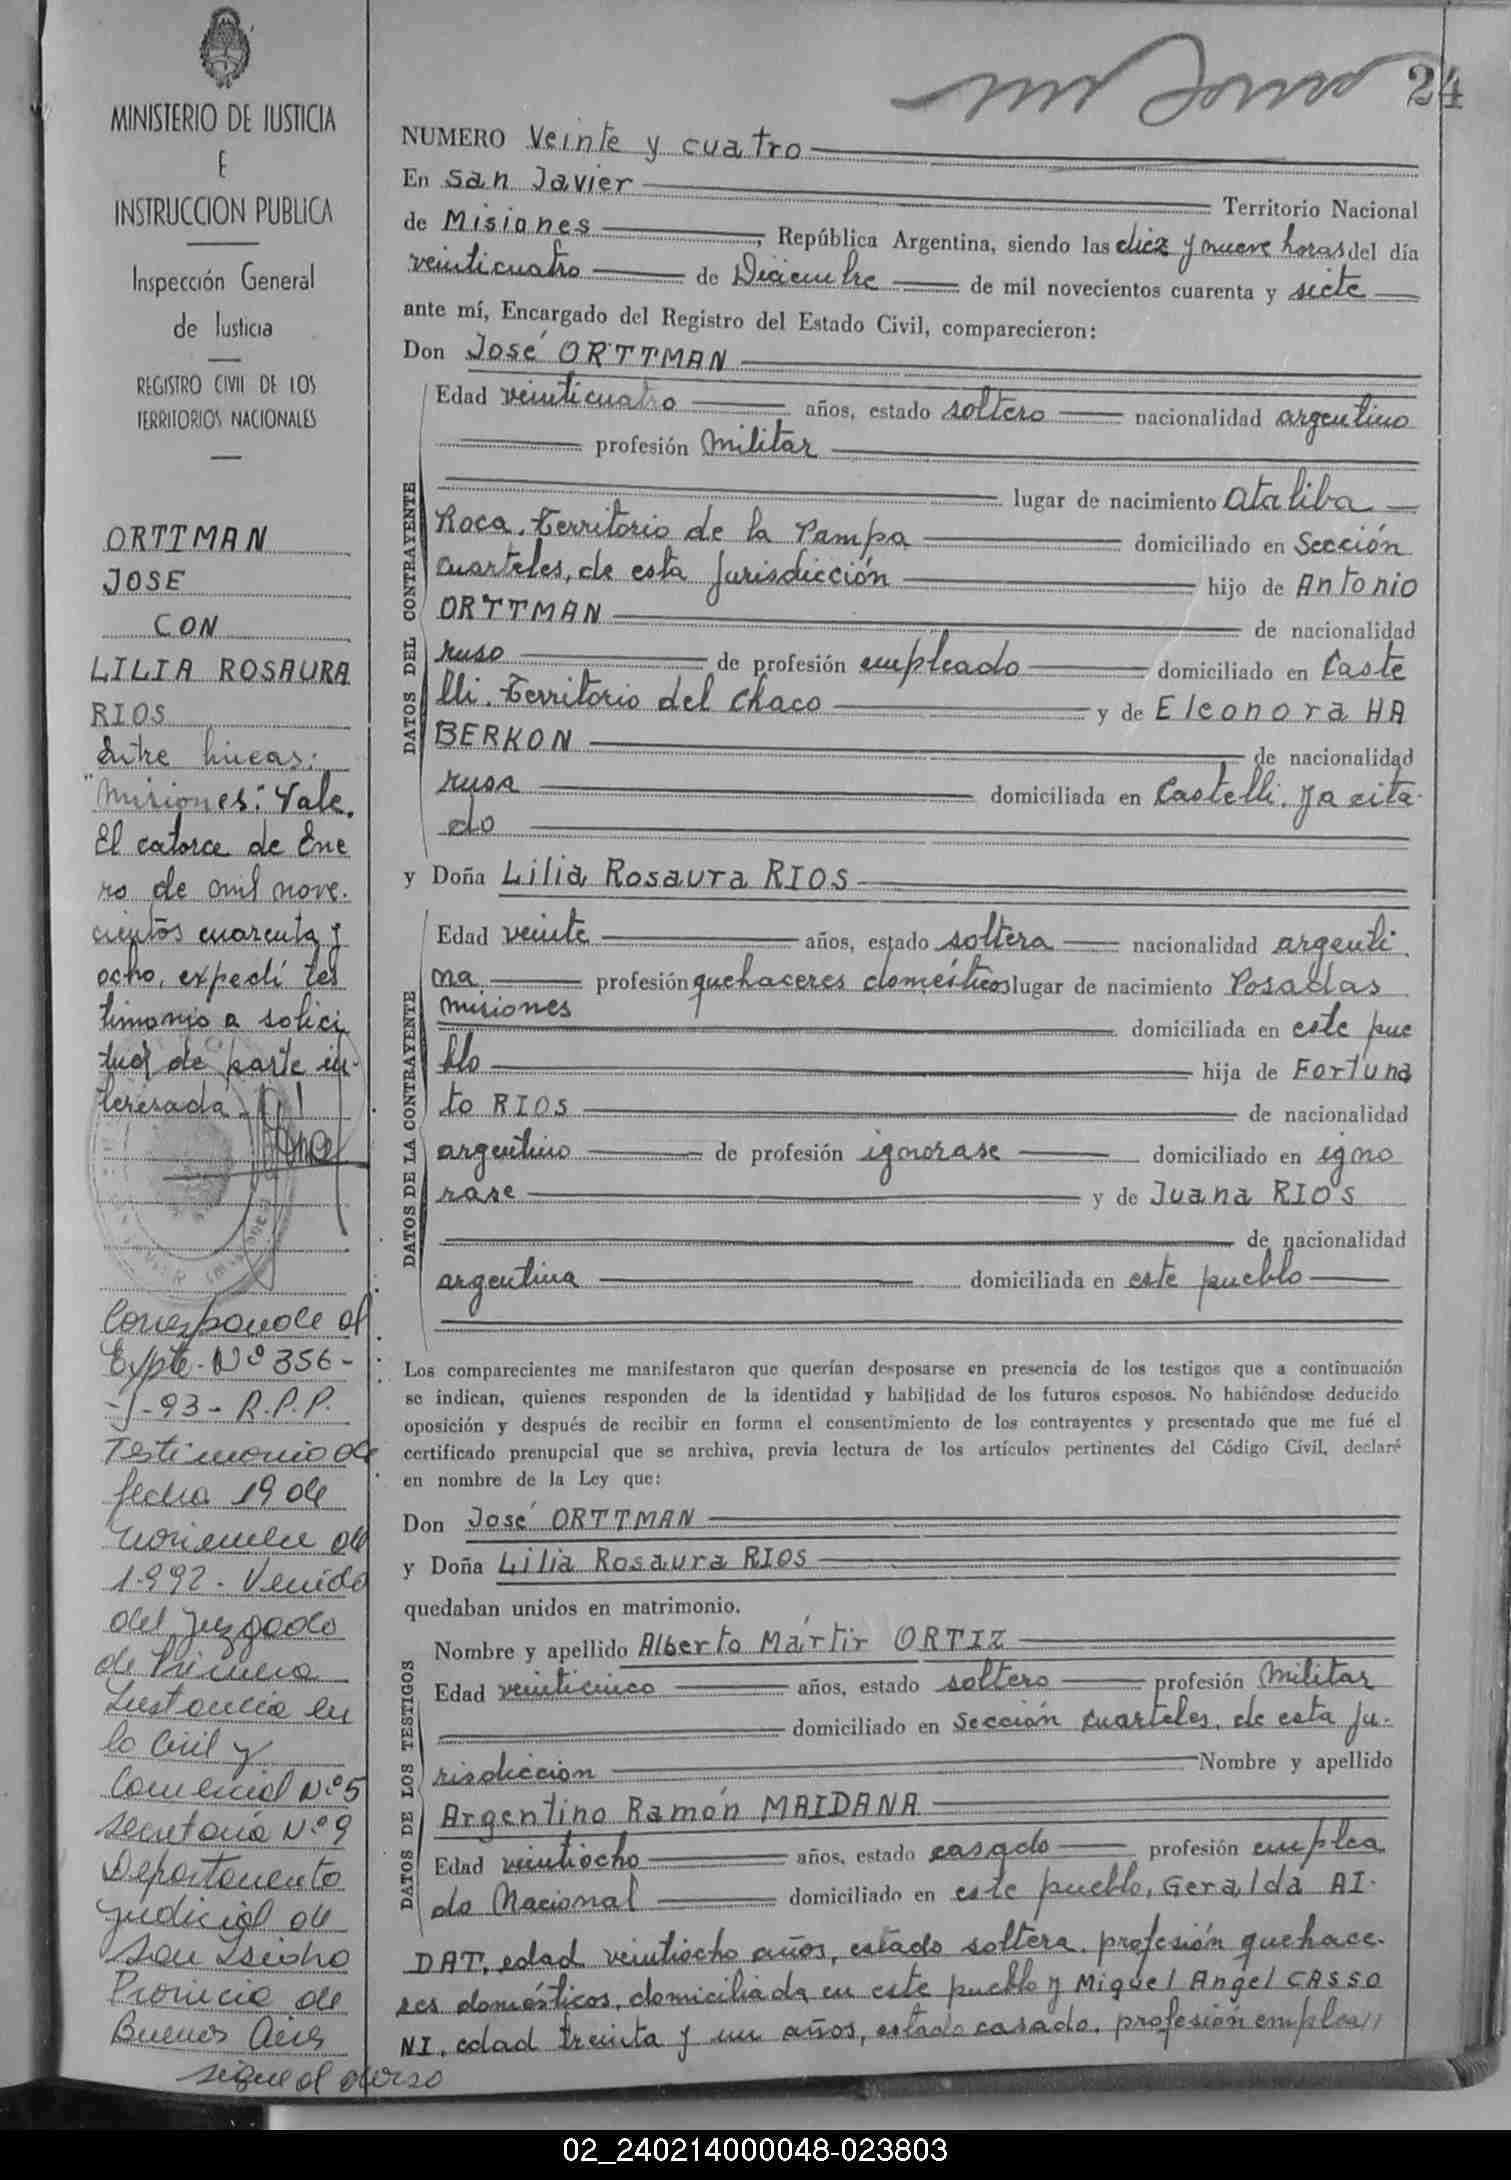 24
MINISTERIO DE JUSTICIA
E
INSTRUCCION PUBLICA
Inspección General
de Justicia
REGISTRO CIVIL DE LOS
TERRITORIOS NACIONALES
ORTTMAN
JOSE
CON
LILIA ROSAURA
RIOS
Entre lineas:
"Misiones": Vale.
El catorce de Ene
ro de mil nove-
cientos cuarenta y
ocho, expedí tes
timonio a solici
tud de parte in-
teresada.
Corresponde al
Expte. Nº 356-
93- R.P.P.
Testimonio de
fecha 19 de
noviembre de
1.992. Venido
del Juzgado
de Primera
Instancia en
lo Civil y
Comercial Nº 5
secretaria Nº 9
Departamento
judicial de
San Isidro
Provincia de
Buenos Aires
sigue al dorso
NUMERO Veinte y cuatro
En San Javier Territorio Nacional
de Misiones, República Argentina, siendo las diez y nueve horas del día
veinticuatro de Diciembre de mil novecientos cuarenta y siete
ante mí, Encargado del Registro del Estado Civil, comparecieron:
Don José ORTTMAN
DATOS DEL CONTRAYENTE
Edad veinticuatro años, estado soltero nacionalidad argentino
profesión Militar
lugar de nacimiento Ataliba
Roca, Territorio de la Pampa domiciliado en Sección
Cuarteles, de esta Jurisdicción hijo de Antonio
ORTTMAN de nacionalidad
ruso de profesión empleado domiciliado en Caste
lli. Territorio del Chaco y de Eleonora HA
BERKON de nacionalidad
rusa domiciliada en Castelli, ya cita-
do
y Doña Lilia Rosaura RIOS
DATOS DE LA CONTRAYENTE
Edad veinte años, estado soltera nacionalidad argenti
na profesión quehaceres domésticos lugar de nacimiento Posadas
Misiones domiciliada en este pue
blo hija de Fortuna
to RIOS de nacionalidad
argentino de profesión ignorase domiciliado en igno
rase y de Juana RIOS
de nacionalidad
argentina domiciliada en este pueblo
Los comparecientes me manifestaron que querían desposarse en presencia de los testigos que a continuación
se indican, quienes responden de la identidad y habilidad de los futuros esposos. No habiéndose deducido
oposición y después de recibir en forma el consentimiento de los contrayentes y presentado que me fué el
certificado prenupcial que se archiva, previa lectura de los artículos pertinentes del Código Civil, declaré
en nombre de la Ley que:
Don José ORTTMAN
y Doña Lilia Rosaura RIOS
quedaban unidos en matrimonio.
DATOS DE LOS TESTIGOS
Nombre y apellido Alberto Mártir ORTIZ
Edad veinticinco años, estado soltero profesión Militar
domiciliado en Sección Cuarteles, de esta Ju-
risdicción Nombre y apellido
Argentino Ramón MAIDANA
Edad veintiocho años, estado casado profesión emplea
do Nacional domiciliado en este pueblo, Geralda AI-
DAT, edad veintiocho años, estado soltera, profesión quehace-
res domésticos, domiciliada en este pueblo y Miguel Angel CASSO
NI, edad treinta y un años, estado casado, profesión emplea//
02_240214000048-023803